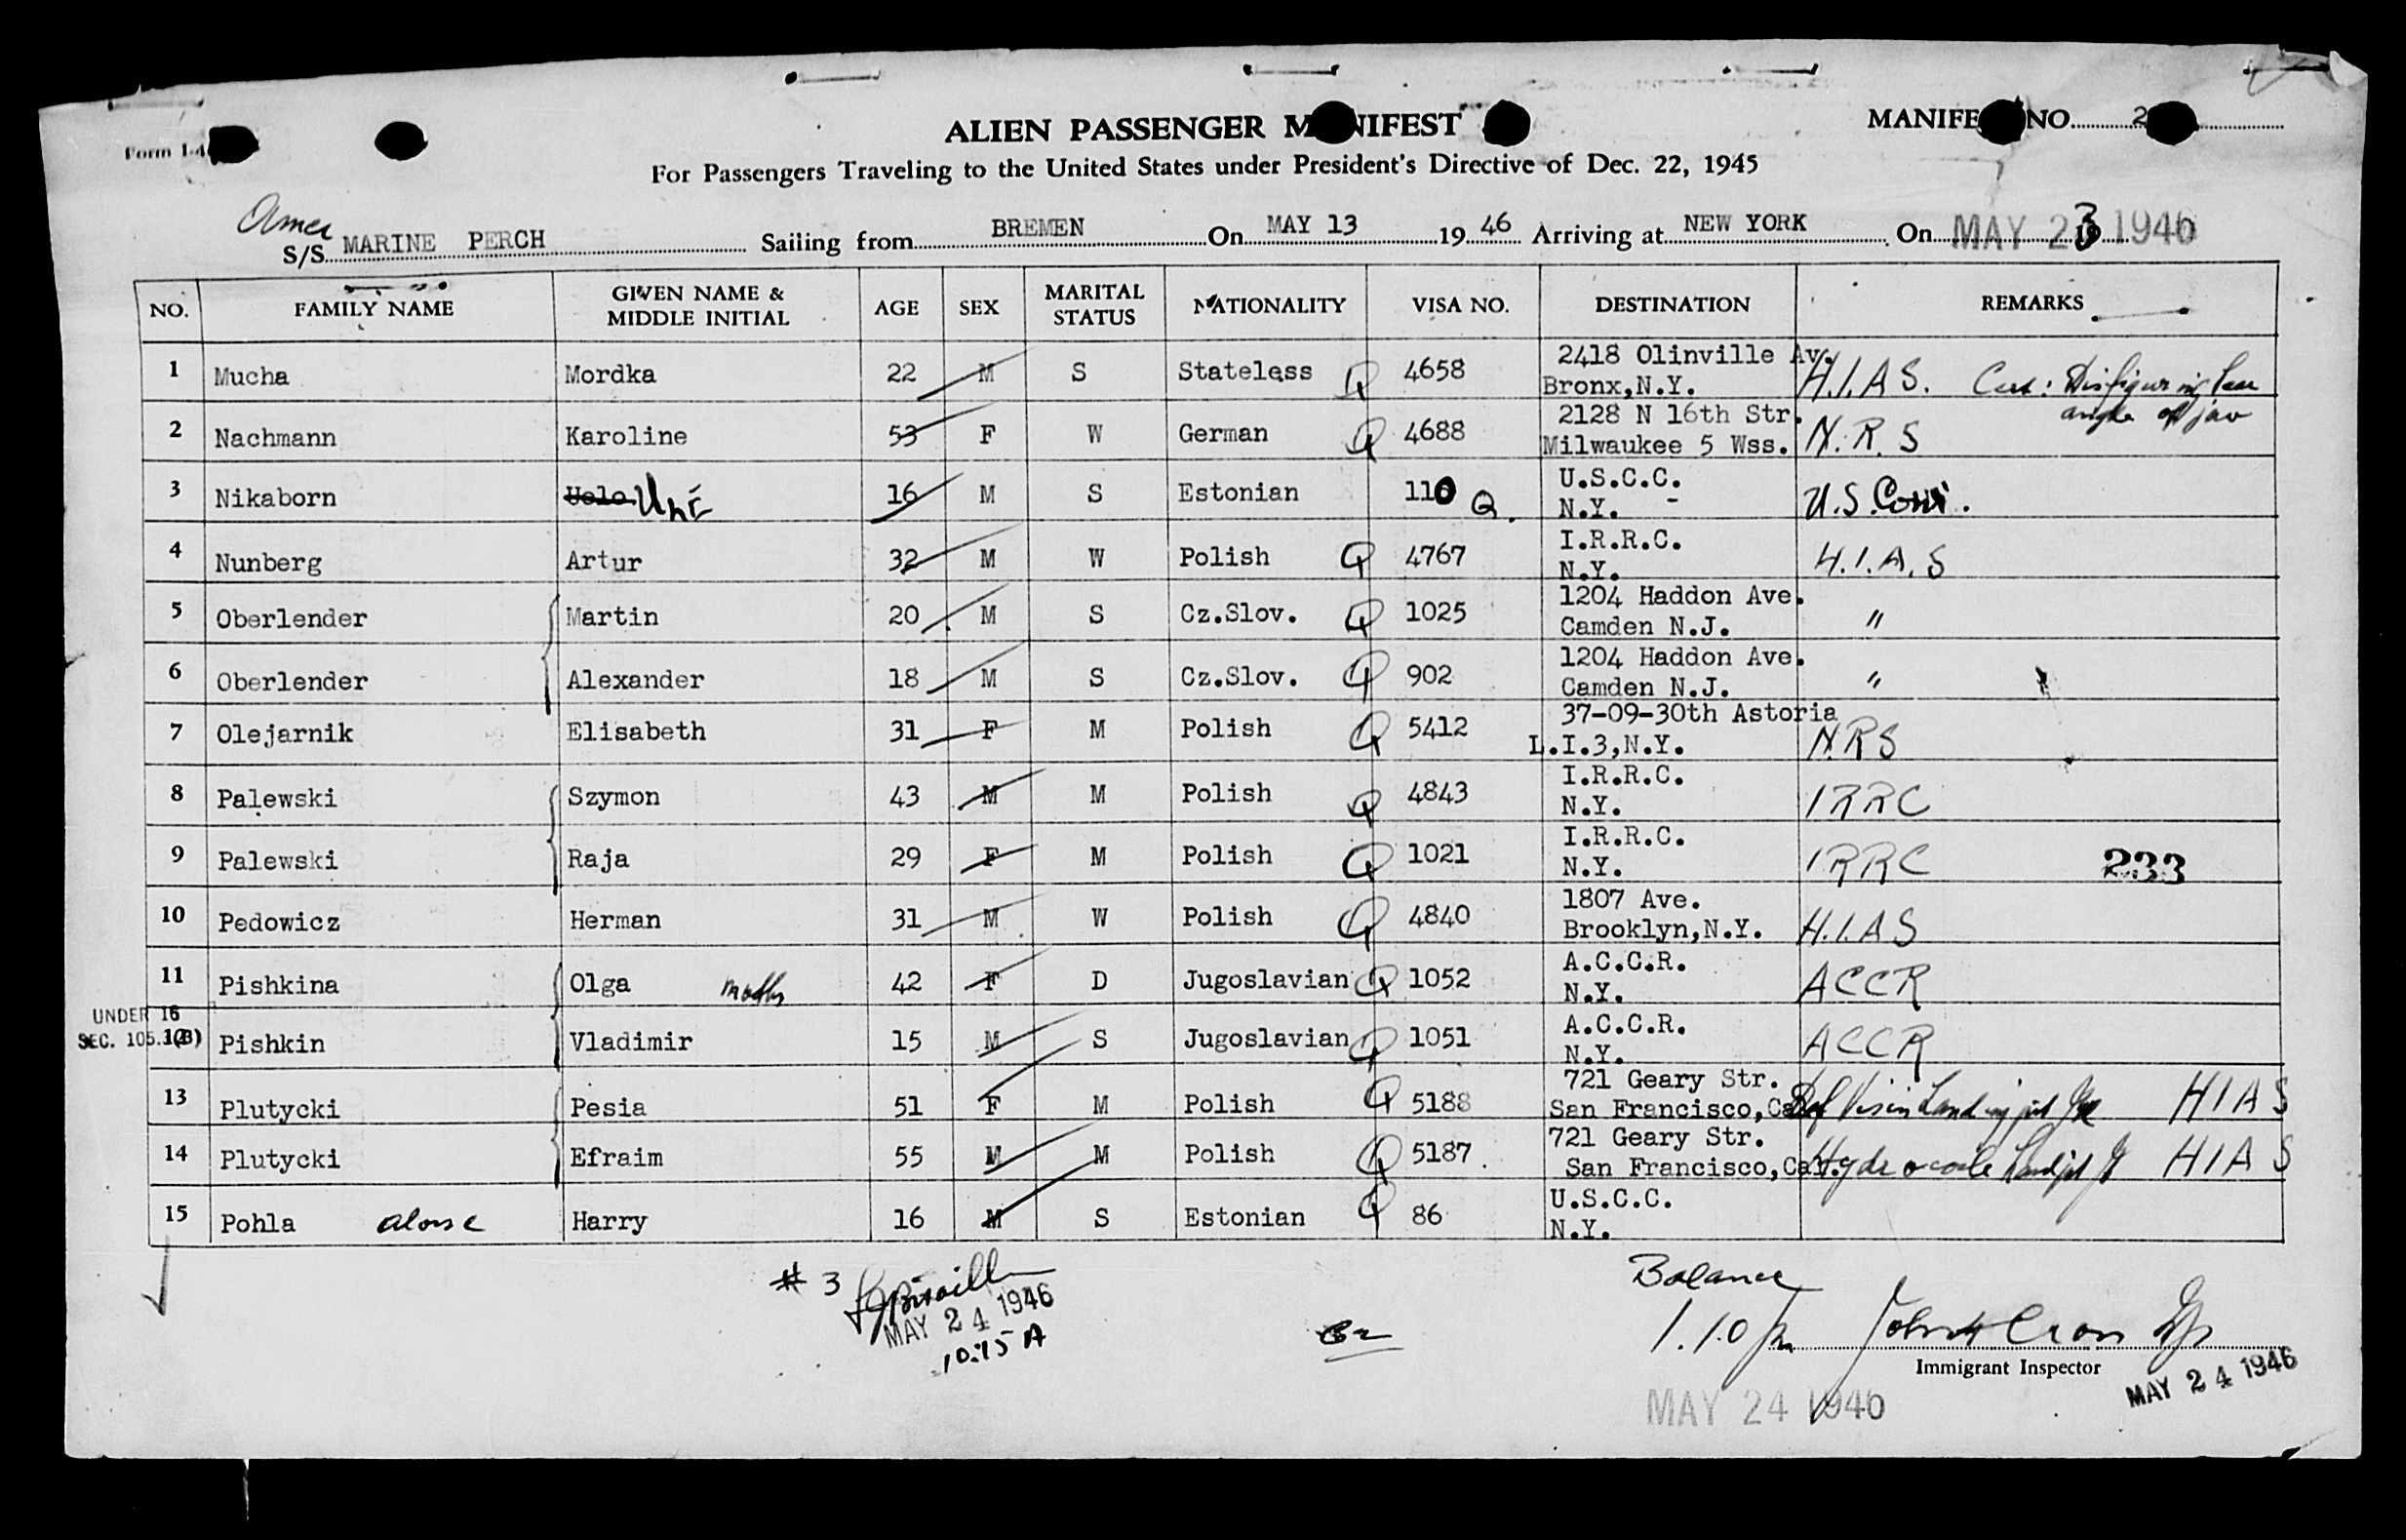 ALIEN PASSENGER M NIFEST
MANIFE NO. 2
Form I-4
For Passengers Traveling to the United States under President's Directive of Dec. 22, 1945
Amer
S/S MARINE PERCH Sailing from BREMEN On MAY 13 19 46 Arriving at NEW YORK On MAY 23 1946
NO. FAMILY NAME GIVEN NAME & MIDDLE INITIAL AGE SEX MARITAL STATUS NATIONALITY VISA NO. DESTINATION REMARKS
1 Mucha Mordka 22 M S Stateless Q 4658 2418 Olinville Av. H.I.A.S. Cert: Disfiguring
Bronx,N.Y. angle of jaw
2 Nachmann Karoline 53 F W German Q 4688 2128 N 16th Str. N.R.S
Milwaukee 5 Wss.
3 Nikaborn 16 M S Estonian 110 Q. U.S.C.C. U.S.
N.Y. -
4 Nunberg Artur 32 M W Polish Q 4767 I.R.R.C. H.I.A.S
N.Y.
5 Oberlender Martin 20 M S Cz.Slov. Q 1025 1204 Haddon Ave. "
Camden N.J.
6 Oberlender Alexander 18 M S Cz.Slov. Q 902 1204 Haddon Ave. "
Camden N.J.
7 Olejarnik Elisabeth 31 F M Polish Q 5412 37-09-30th Astoria N.R.S
L.I.3,N.Y.
8 Palewski Szymon 43 M M Polish Q 4843 I.R.R.C. IRRC
N.Y.
9 Palewski Raja 29 F M Polish Q 1021 I.R.R.C. IRRC 233
N.Y.
10 Pedowicz Herman 31 M W Polish Q 4840 1807 Ave. H.I.A.S
Brooklyn,N.Y.
11 Pishkina Olga mother 42 F D Jugoslavian Q 1052 A.C.C.R. ACCR
N.Y.
UNDER 16
SEC. 105.3(B)
12 Pishkin Vladimir 15 M S Jugoslavian Q 1051 A.C.C.R. ACCR
N.Y.
13 Plutycki Pesia 51 F M Polish Q 5188 721 Geary Str. Def Vision HIAS
San Francisco,Cal.
14 Plutycki Efraim 55 M M Polish Q 5187. 721 Geary Str. Hydrocele HIAS
San Francisco,Cal.
15 Pohla alone Harry 16 M S Estonian Q 86 U.S.C.C.
N.Y.
# 3
MAY 24 1946
10:15 A
Balance
1.10 pm
Immigrant Inspector
MAY 24 1946
MAY 24 1946